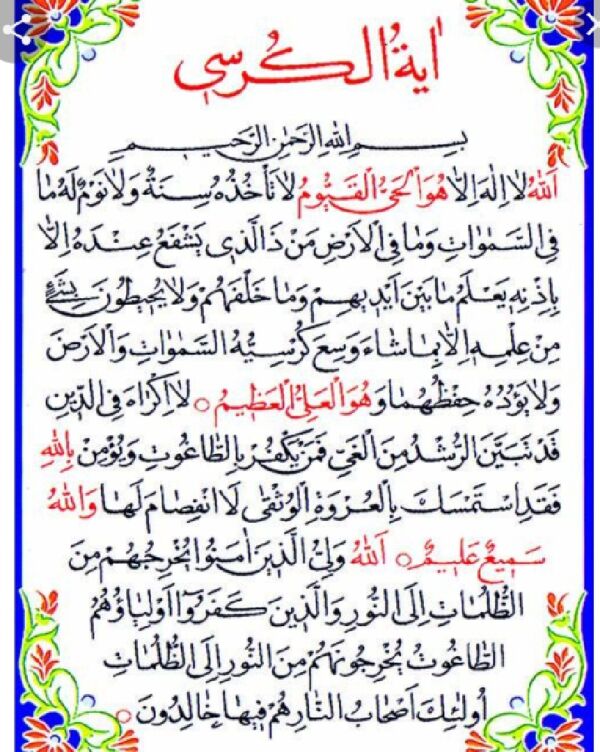 اٰيةُ الكُرسي
بِسْمِ اللهِ الرَّحْمٰنِ الرَّحيمِ
اَللهُ لَا اِلٰهَ اِلَّا هُوَ الْحَيُّ الْقَيُّومُ لَا تَأْخُذُهُ سِنَةٌ وَلَا نَوْمٌ لَهُ مَا
فِي السَّمٰوَاتِ وَمَا فِي الْاَرْضِ مَنْ ذَا الَّذي يَشْفَعُ عِنْدَهُ اِلَّا
بِاِذْنِهِ يَعْلَمُ مَا بَيْنَ اَيْديهِمْ وَمَا خَلْفَهُمْ وَلَا يُحيطُونَ بِشَيْءٍ
مِنْ عِلْمِهِ اِلَّا بِمَا شَاءَ وَسِعَ كُرْسِيُّهُ السَّمٰوَاتِ وَالْاَرْضَ
وَلَا يَؤُدُهُ حِفْظُهُمَا وَهُوَ الْعَلِيُّ الْعَظيمُ ○ لَا اِكْرَاهَ فِي الدّينِ
قَدْ تَبَيَّنَ الرُّشْدُ مِنَ الْغَيِّ فَمَنْ يَكْفُرْ بِالطَّاغُوتِ وَيُؤْمِنْ بِاللهِ
فَقَدِ اسْتَمْسَكَ بِالْعُرْوَةِ الْوُثْقٰى لَا انْفِصَامَ لَهَا وَاللهُ
سَميعٌ عَليمٌ ○ اَللهُ وَلِيُّ الَّذينَ اٰمَنُوا يُخْرِجُهُمْ مِنَ
الظُّلُمَاتِ اِلَى النُّورِ وَالَّذينَ كَفَرُوا اَوْلِيَاؤُهُمُ
الطَّاغُوتُ يُخْرِجُونَهُمْ مِنَ النُّورِ اِلَى الظُّلُمَاتِ
اُولٰئِكَ اَصْحَابُ النَّارِ هُمْ فيهَا خَالِدُونَ ○